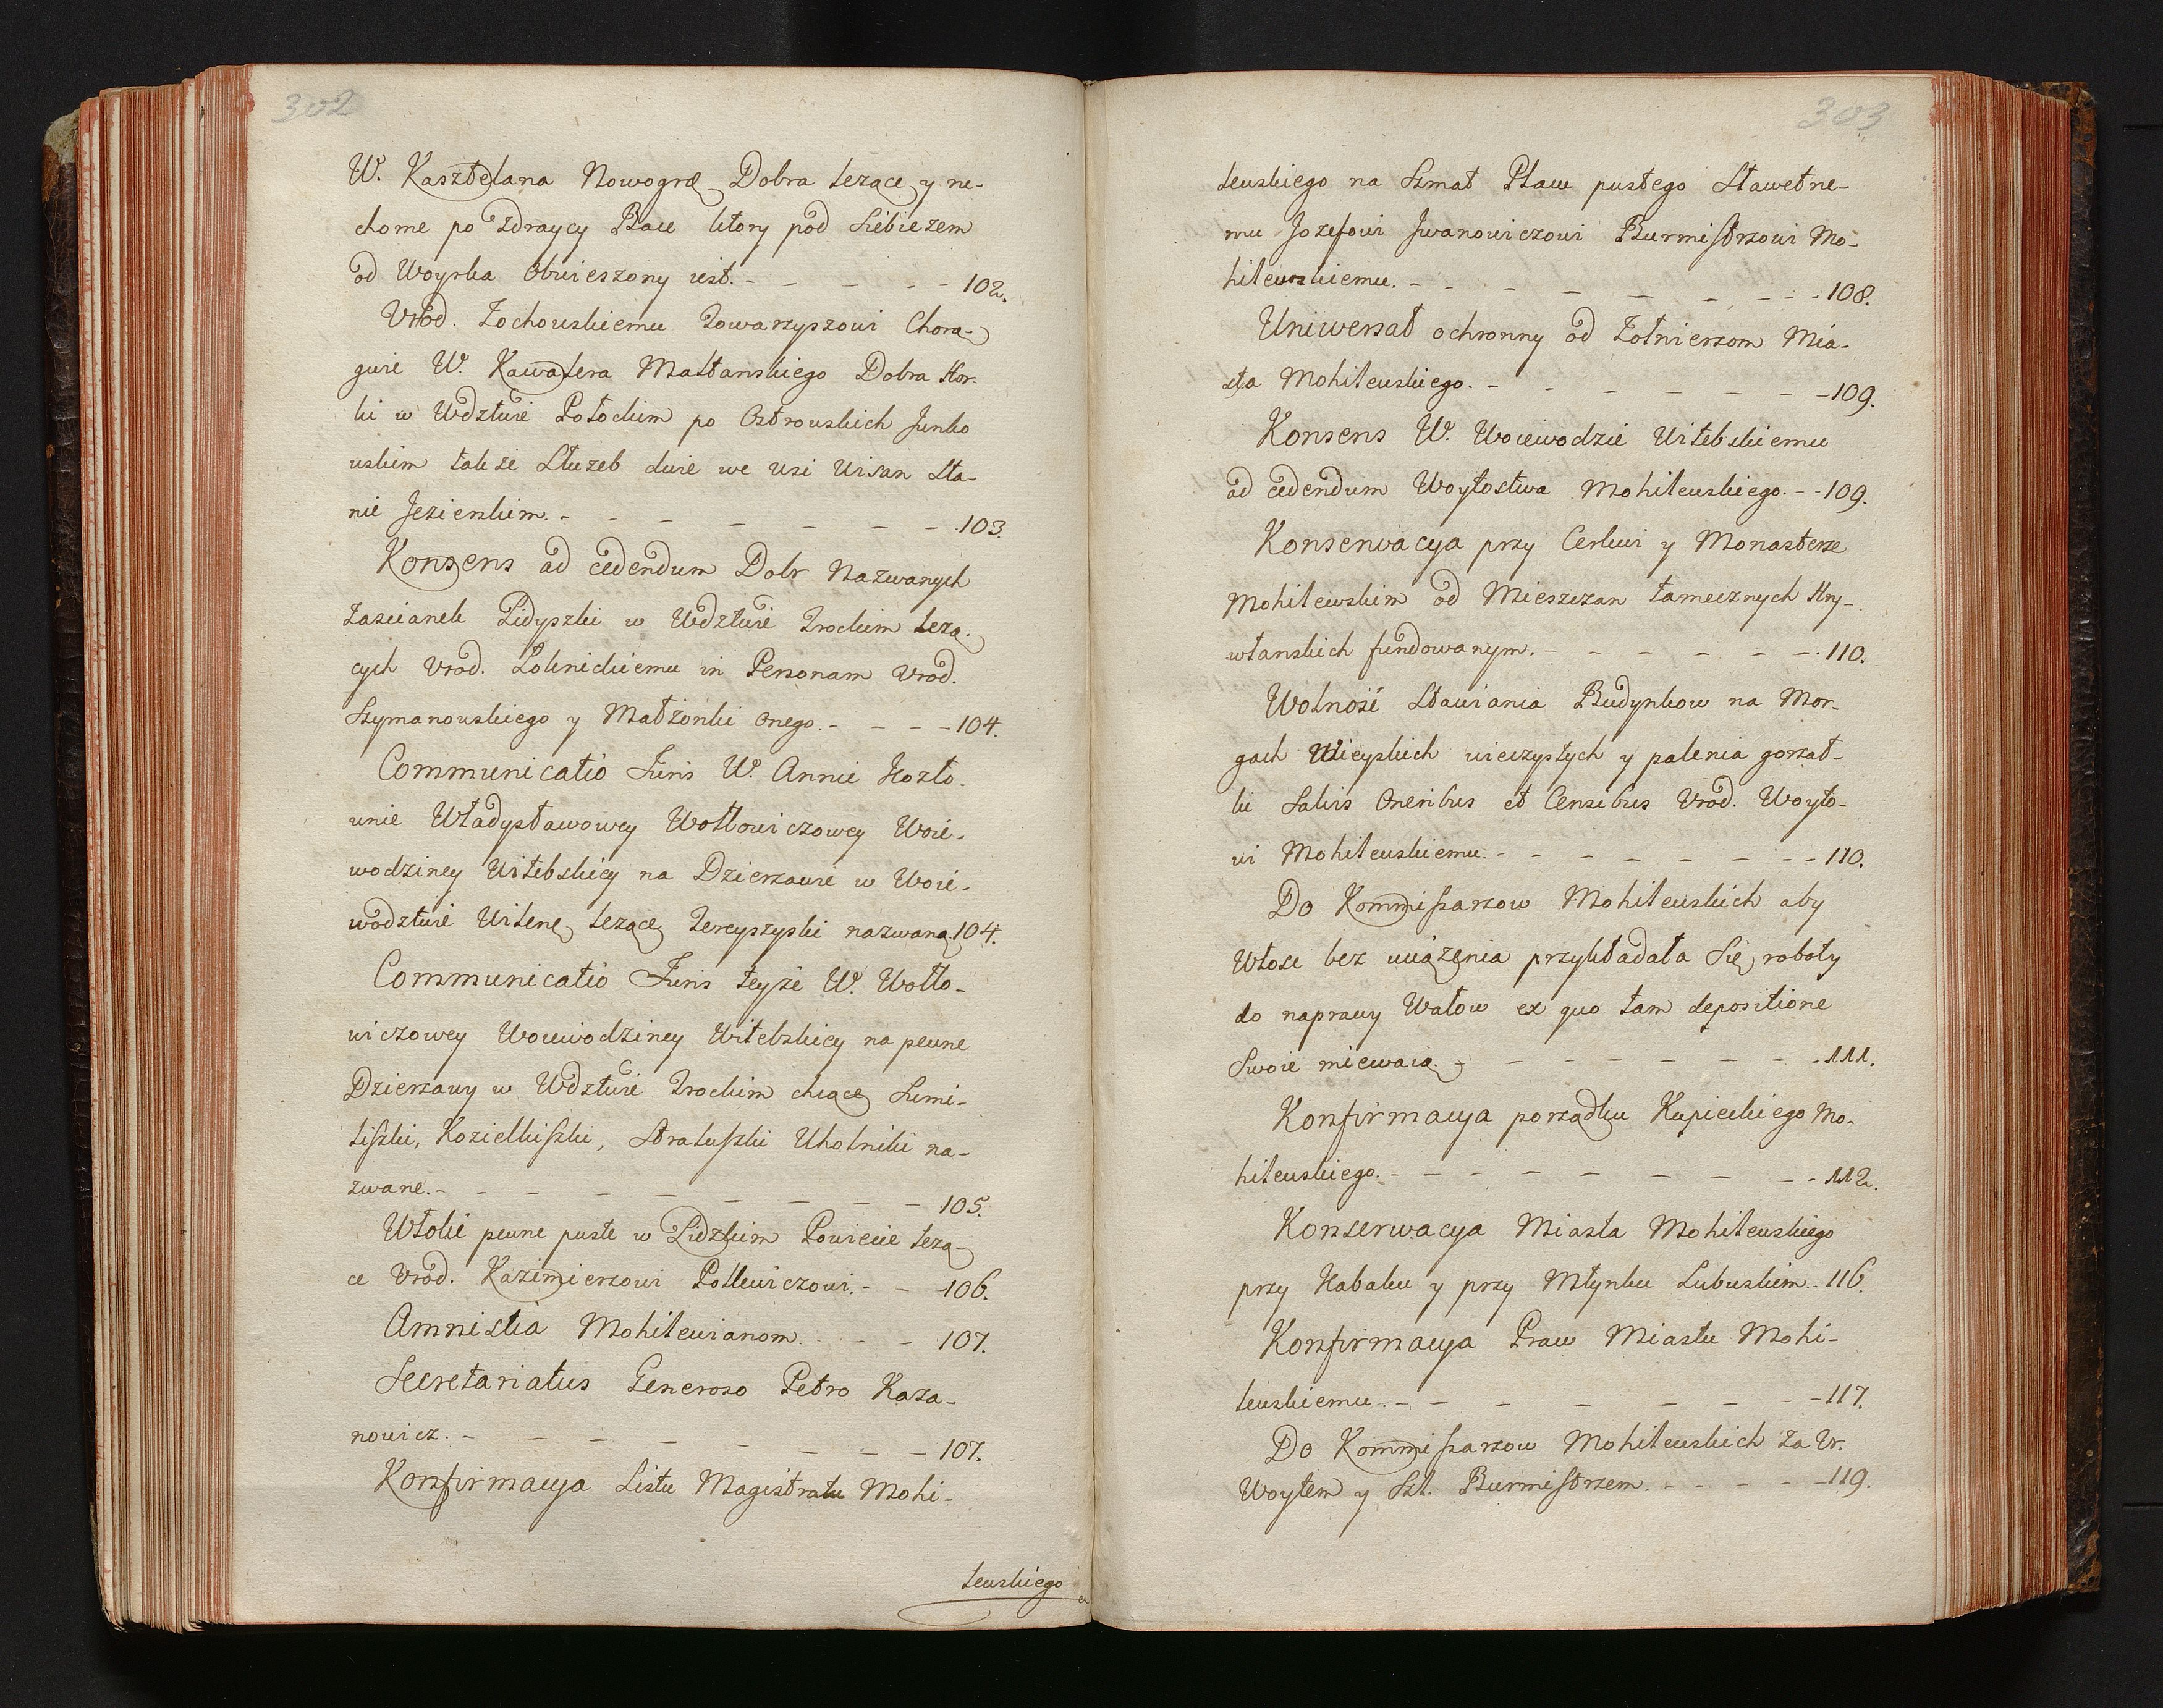 302
W. Kasztelana Nowogrã Dobra leżące y ru-
chome po Zdraycy Bace ktory pod Siebieżem
od Woyska Obwieszony iest. - - - - - 102.
Vrod. Żochowskiemu Towarzyszowi Chorą-
gwie W. Kawalera Maltanskiego Dobra Hor-
ki w Wdztwie Połockim po Ostrowskich Junko
wskim także Służeb dwie we Wsi Wisan Sta-
nie Jezierskim. - - - - - - - 103.
Konsens ad cedendum Dobr Nazwanych
Zascianek Pidyszki w Wdztwie Trockim leżą-
cych Vrod. Łoknickiemu in Personam Vrod.
Szymanowskiego y Małżonki onego. - - - - 104.
Communicatio Juris W. Annie Kozło-
wnie Władysławowey Wołłowiczowey Woie-
wodziney Witebskiey na Dzierzawie w Woie-
wodztwie Wilenę leżącę Jereyszyski nazwaną 104.
Communicatio Juris teyże W. Wołło-
wiczowey Woiewodziney Witebskiey na pewne
Dzierzawy w Wdztwie Trockim chcące Sumi-
liszki, Kozielkiszki, Straluszki Uholniki na-
zwane. - - - - - - - - 105.
Włoki pewne puste w Lidzkim Powiecie leżą-
ce Vrod. Kazimierzowi Potkewiczowi. - - 106.
Amnistia Mohilewianom. - - - 107.
Secretariatus Generoso Petro Kaza-
nowicz. - - - - - - - - 107.
Konfirmacya Listu Magistratu Mohi-
lewskiego
303
lewskiego na Szmat Placu pustego Sławetne-
mu Jozefowi Jwanowiczowi Burmistrzowi Mo-
hilewskiemu. - - - - - - - - - 108.
Uniwersał ochronny od Żołnierzom Mia-
sta Mohilewskiego. - - - - - - - 109.
Konsens W. Woiewodzie Witebskiemu
ad cedendum Woytostwa Mohilewskiego. - - 109.
Konserwacya przy Cerkwi y Monasterze
Mohilewskim od Mieszczan tamecznych Kry-
włanskich fundowanym. - - - - - - 110.
Wolność Stawiania Budynkow na Mor-
gach Mieyskich wieczystych y palenia gorzał-
ki Salvis Oneribus et Censibus Vrod. Woyto-
wi Mohilewskiemu. - - - - - - - - 110.
Do Kommissarzow Mohilewskich aby
Włose bez uciążenia przykładała Się roboty
do naprawy Wałow ex quo tam depositione
Swoie miewaią. - - - - - - - 111.
Konfirmacya porządku Kupieckiego Mo-
hilewskiego. - - - - - - - - - 112.
Konserwacya Miasta Mohilewskiego
przy Kabaku y przy Młynku Lubuskim. - 116.
Konfirmacya Praw Miastu Mohi-
lewskiemu. - - - - - - - - 117.
Do Kommissarzow Mohilewskich za Ur.
Woytem y Szl. Burmistrzem. - - - - - 119.